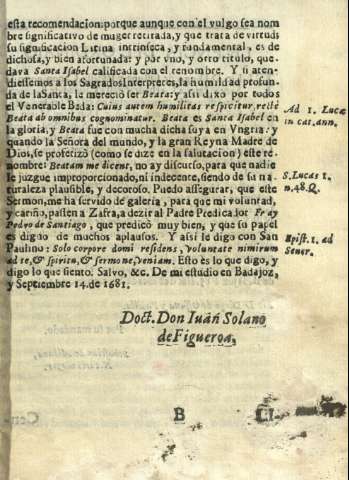 esta recomendacion: porque aunque con el vulgo sea nom
bre significativo de muger retirada, y que trata de virtud: s
su significacion Latina intrinseca, y fundamental, es de
dichosa, y bien afortunada: y por vno, y otro titulo, que-
dava Santa Isabel calificada con el renombre. Y si aten-
diessemos a los Sagrados Interpretes, la humildad profun-
da de la Santa, le mereciò ser Beata: y assi dixo por todos
el Venerable Beda: Cuius autem humilitas respicitur, rectè
Beata ab omnibus cognominatur. Beata es Santa Isabel en
la gloria, y Beata fue con mucha dicha suya en Vngria: y
quando la Señora del mundo, y la gran Reyna Madre de
Dios, se profetizò (como se dize en la salutacion) este re-
nombre: Beatam me dicent, no ay discurso, para que nadie
le juzgue improporcionado, ni indecente, siendo de su na-
turaleza plausible, y decoroso. Puedo assegurar, que este
Sermon, me ha servido de galeria, para que mi voluntad,
y cariño, passen a Zafra, a dezir al Padre Predicador Fray
Pedro de Santiago, que predicò muy bien, y que su papel
es digno de muchos aplausos. Y assi le digo con San
Paulino: Solo corpore domi residens, voluntate nimirum
ad te, & spiritu, & sermone, veniam. Esto es lo que digo, y
digo lo que siento. Salvo, &c. De mi estudio en Badajoz,
y Septiembre 14. de 1681.
Ad 1. Lucæ
in cat. ann.
S. Lucas 1.
n. 48. Q.
Epist. 1. ad
Sever.
Doct. Don Iuan Solano
de Figueroa,
B